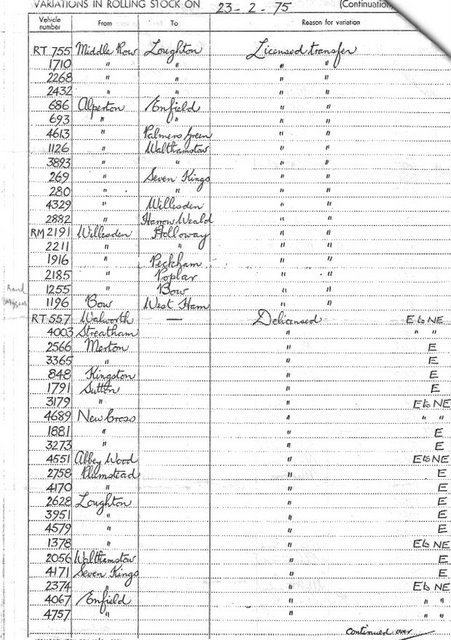 VARIATIONS IN ROLLING STOCK ON 23-2-75 (Continuation
Vehicle number From To Reason for variation
RT 755 Middle Row Loughton Licensed transfer
1710 " " " "
2268 " " " "
2432 " " " "
686 Alperton Enfield " "
693 " " " "
4613 " Palmers Green " "
1126 " Walthamstow " "
3893 " " " "
269 " Seven Kings " "
280 " " " "
4329 " Willesden " "
2882 " Harrow Weald " "
RM 2191 Willesden Holloway " "
2211 " " " "
1916 " Peckham " "
2185 " Poplar " "
1255 " Bow " "
1196 Bow West Ham " "
RT 557 Walworth — Delicensed E to NE
4003 Streatham " " "
2566 Merton " E
3365 " " E
848 Kingston " E
1791 Sutton " E
3179 " " E to NE
4689 New Cross " " "
1881 " " E
3273 " " E
4551 Abbey Wood " E to NE
2758 Plumstead " E
4170 " " E
2628 Loughton " E
3951 " " E
4579 " " E
1378 " " E to NE
2056 Walthamstow " E
4171 Seven Kings " E
2374 " " E to NE
4067 Enfield " " "
4757 " " " "
continued over